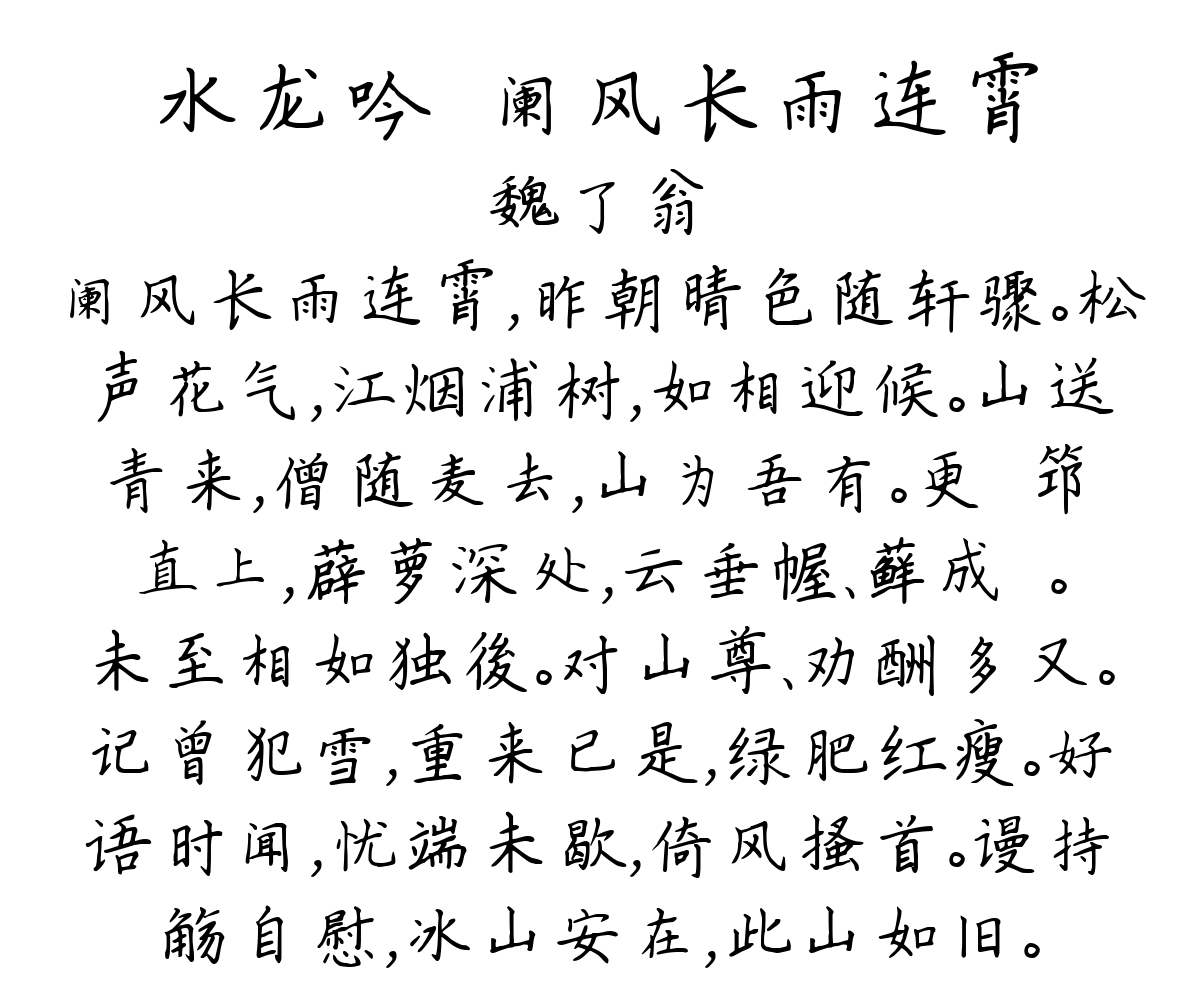 水龙吟 阑风长雨连霄
魏了翁
阑风长雨连霄,昨朝晴色随轩骤。松
声花气,江烟浦树,如相迎候。山送
青来,僧随麦去,山为吾有。更 筇
直上,薜萝深处,云垂幄、藓成 。
未至相如独後。对山尊、劝酬多又。
记曾犯雪,重来已是,绿肥红瘦。好
语时闻,忧端未歇,倚风搔首。谩持
觞自慰,冰山安在,此山如旧。